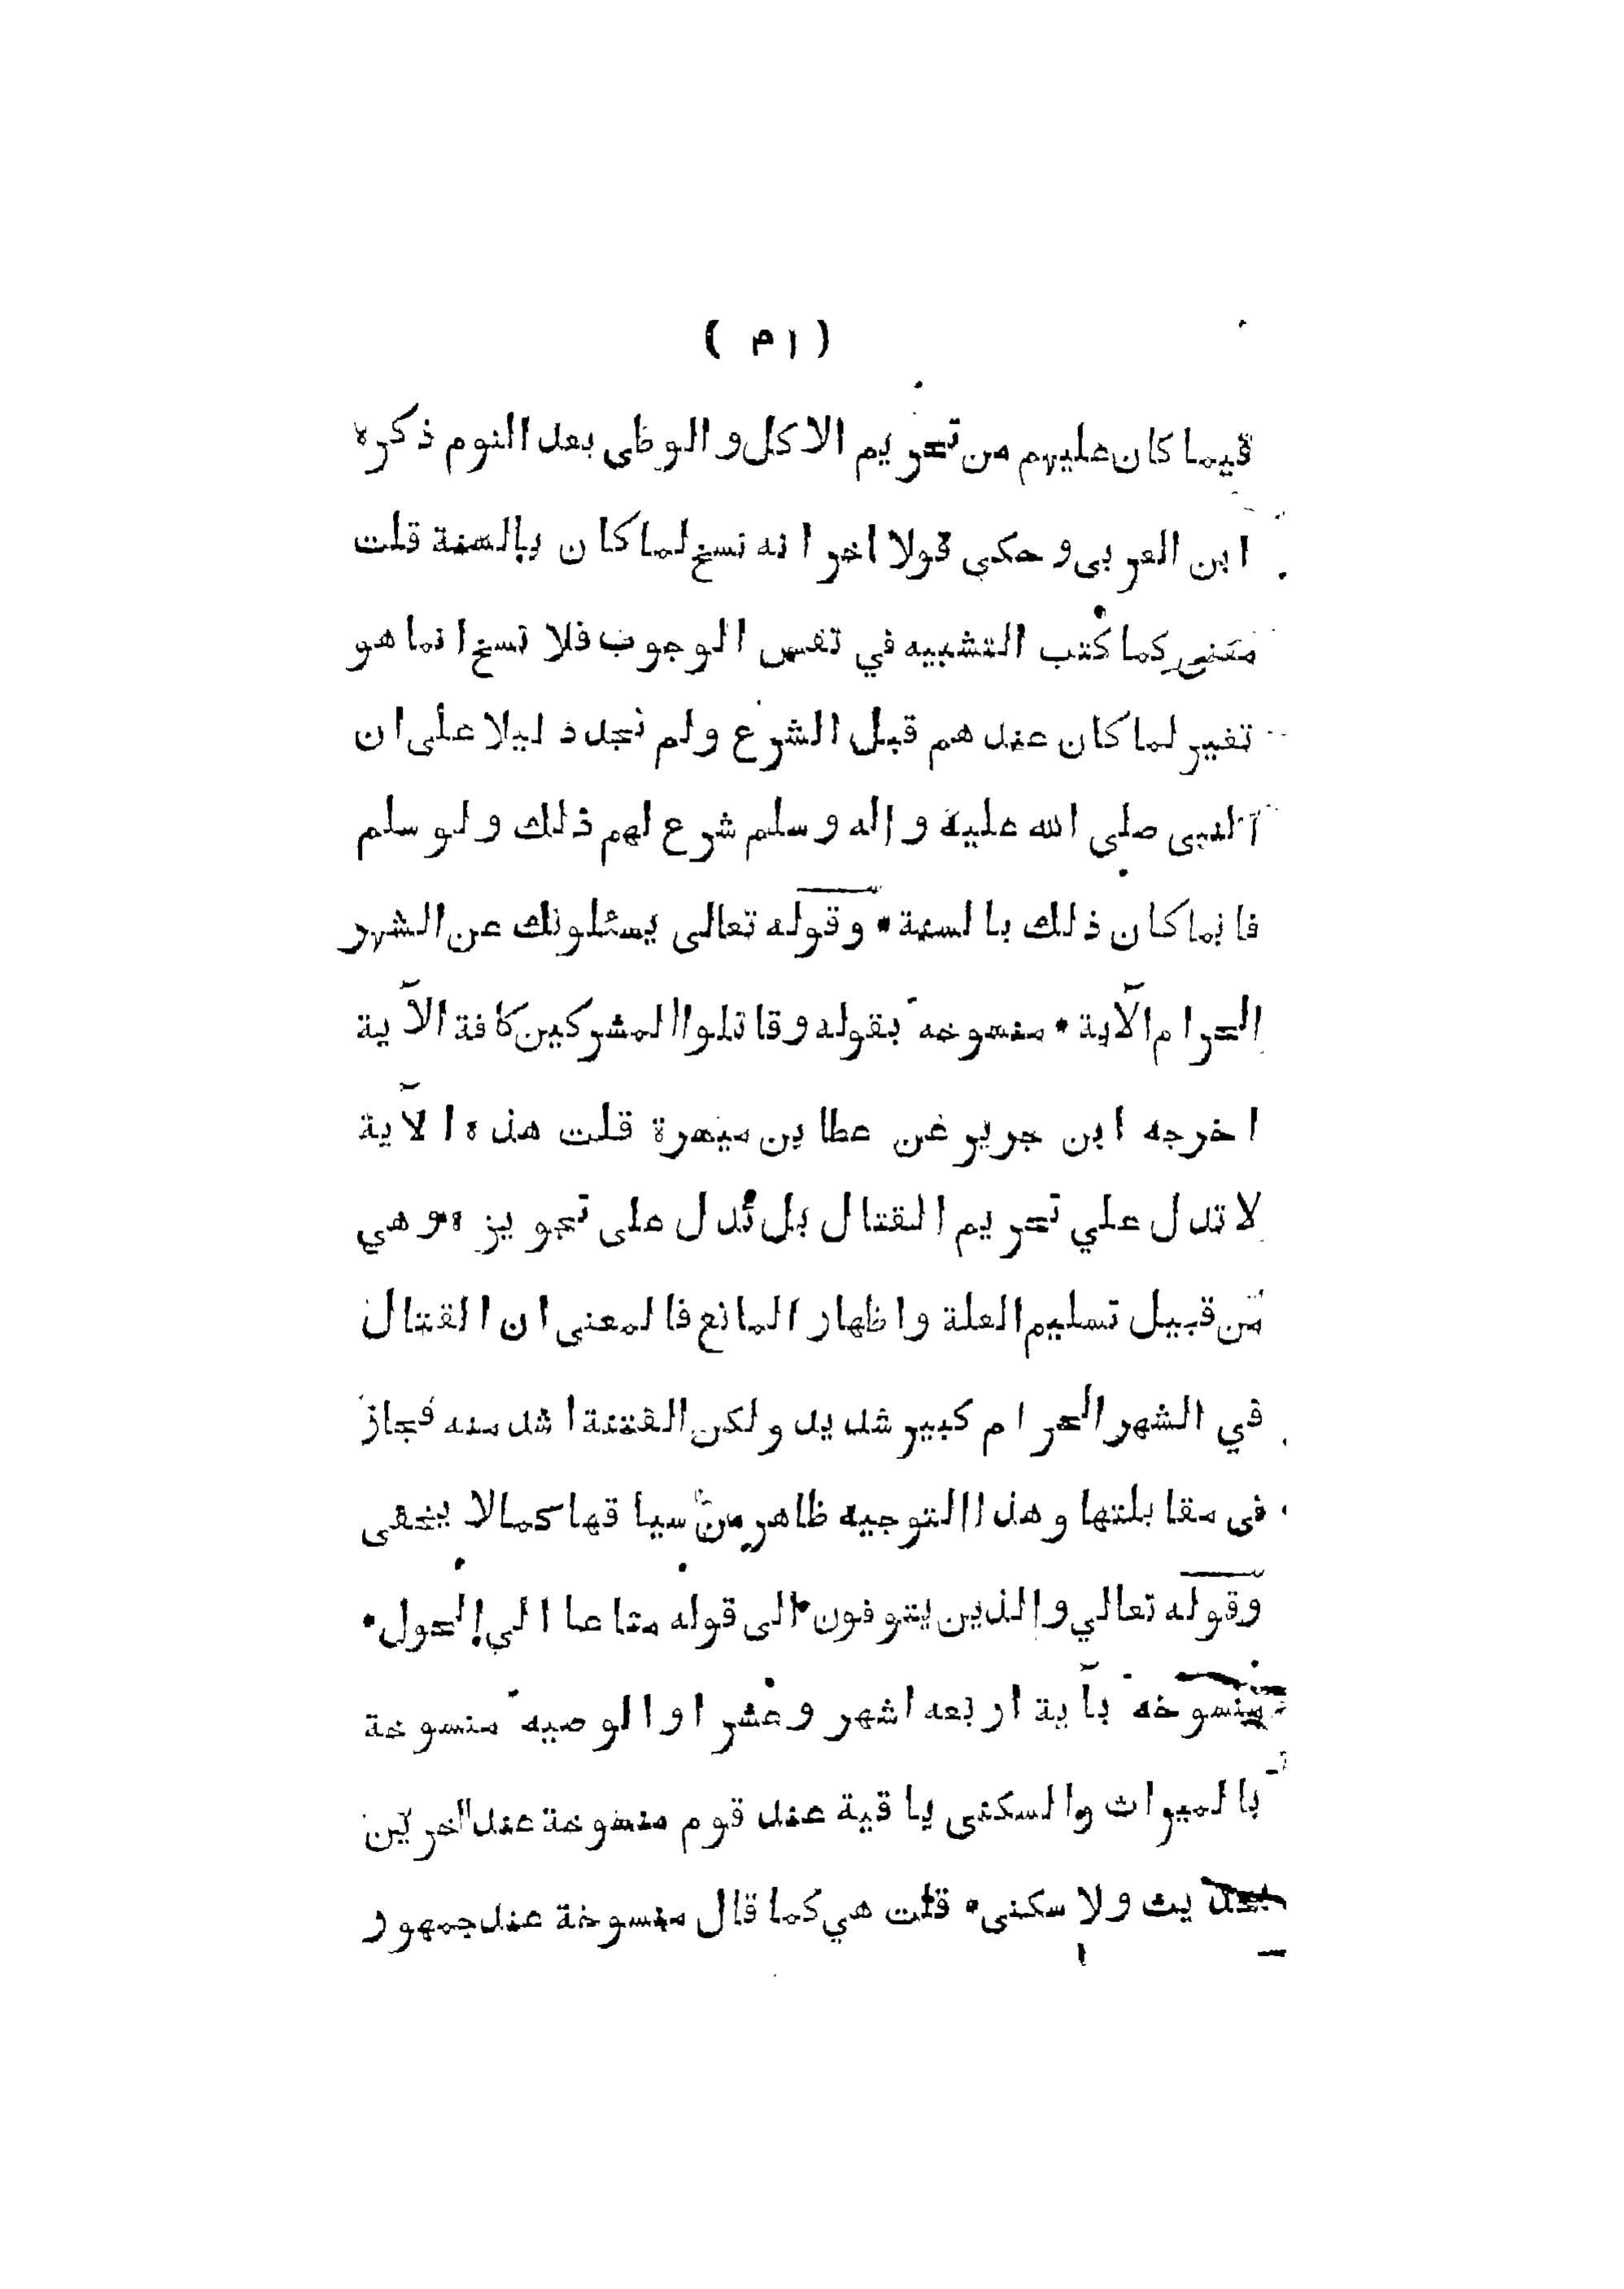 ( ١م )
فيما كان عليهم من تحريم الاكل والوطى بعد النوم ذكره
ابن العربى وحكى قولا اخر انه نسخ لما كان بالسنة قلت
معنى كما كتب التشبيه في نفس الوجوب فلا نسخ انما هو
تغيير لما كان عندهم قبل الشرع ولم نجد دليلا على ان
النبى صلى الله عليه واله وسلم شرع لهم ذلك ولو سلم
فانما كان ذلك بالسنة • وقوله تعالى يسئلونك عن الشهر
الحرام الآية • منسوخة بقوله وقاتلوا المشركين كافة الآية
اخرجه ابن جرير عن عطا بن ميسرة قلت هذه الآية
لا تدل علي تحريم القتال بل تدل على تجويزه وهي
من قبيل تسليم العلة واظهار المانع فالمعنى ان القتال
في الشهر الحرام كبير شديد ولكن الفتنة اشد منه فجاز
فى مقابلتها وهذا التوجيه ظاهر من سياقها كما لا يخفى
وقوله تعالي والذين يتوفون الى قوله متاعا الي الحول •
منسوخة بآية اربعه اشهر وعشرا والوصية منسوخة
بالميراث والسكنى باقية عند قوم منسوخة عند اخرين
بحديث ولا سكنى • قلت هي كما قال منسوخة عند جمهور